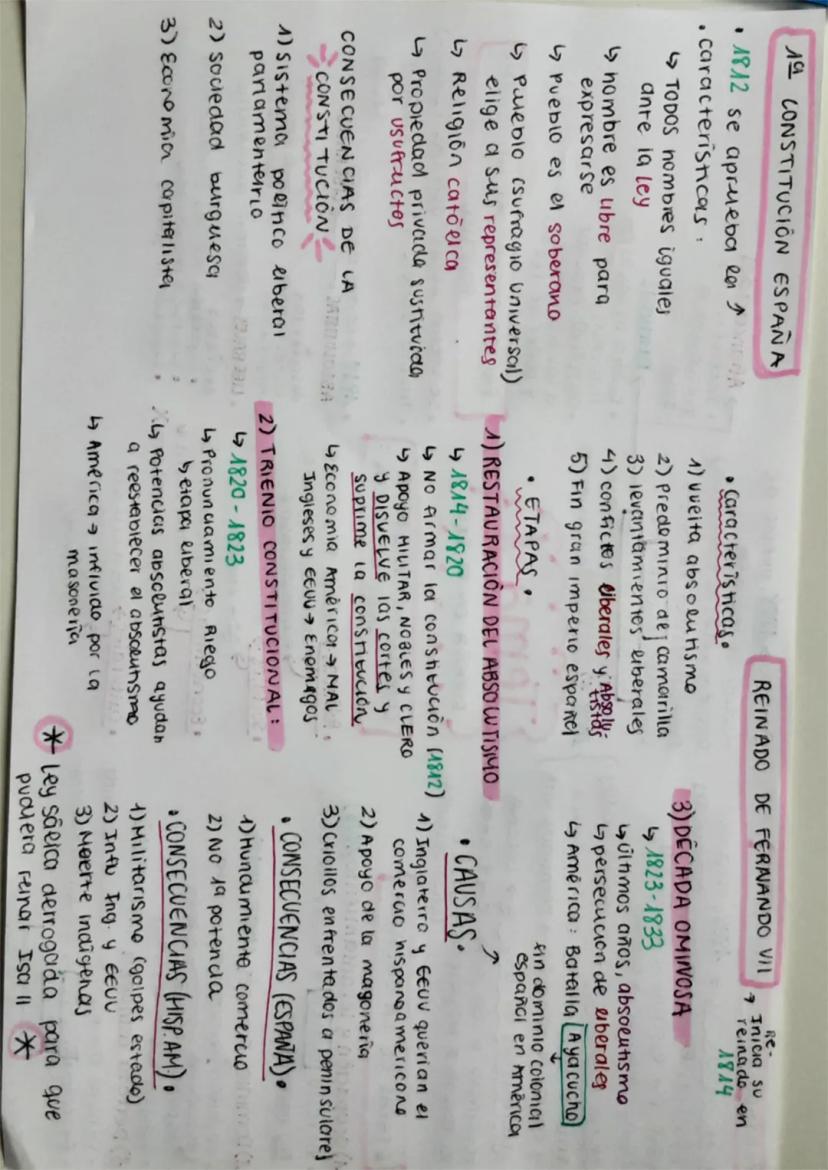 1ª CONSTITUCIÓN ESPAÑA
• 1812 se aprueba la ↗
• características:
↳ TODOS hombres iguales
ante la ley
↳ hombre es libre para
expresarse
↳ Pueblo es el soberano
↳ Pueblo (sufragio universal)
elige a sus representantes
↳ Religión católica
↳ Propiedad privada sustituida
por usufructos
CONSECUENCIAS DE LA
CONSTITUCIÓN
1) Sistema político liberal
parlamentario
2) Sociedad burguesa
3) Economía capitalista
REINADO DE FERNANDO VII
→ Inicia su
re-
reinado en
1814
• Características •
1) Vuelta absolutismo
2) Predominio de camarilla
3) levantamientos liberales
4) conflictos liberales y absolu-
tistas
5) Fin gran imperio español
• ETAPAS •
1) RESTAURACIÓN DEL ABSOLUTISMO
↳ 1814-1820
↳ No armar la constitución (1812)
↳ Apoyo MILITAR, NOBLES y CLERO
y DISUELVE las cortes y
suprime la constitución
↳ Economía América → MAL
Ingleses y EEUU → Enemigos
2) TRIENIO CONSTITUCIONAL:
↳ 1820-1823
↳ Pronunciamiento Riego
↳ etapa liberal
↳ Potencias absolutistas ayudan
a reestablecer el absolutismo
↳ América → influido por la
masonería
3) DÉCADA OMINOSA
↳ 1823-1833
↳ últimos años, absolutismo
↳ persecución de liberales
↳ América: Batalla Ayacucho
↓
fin dominio colonial
español en América
• CAUSAS •
1) Inglaterra y EEUU querían el
comercio hispanoamericano
2) Apoyo de la magonería
3) Criollos enfrentados a peninsulares
• CONSECUENCIAS (ESPAÑA) •
1) Hundimiento comercio
2) No 1ª potencia
• CONSECUENCIAS (HISP.AM) •
1) Militarismo (golpes estado)
2) Influ Ing. y EEUU
3) Muerte indígenas
* Ley sálica derrogada para que
pudiera reinar Isa II *